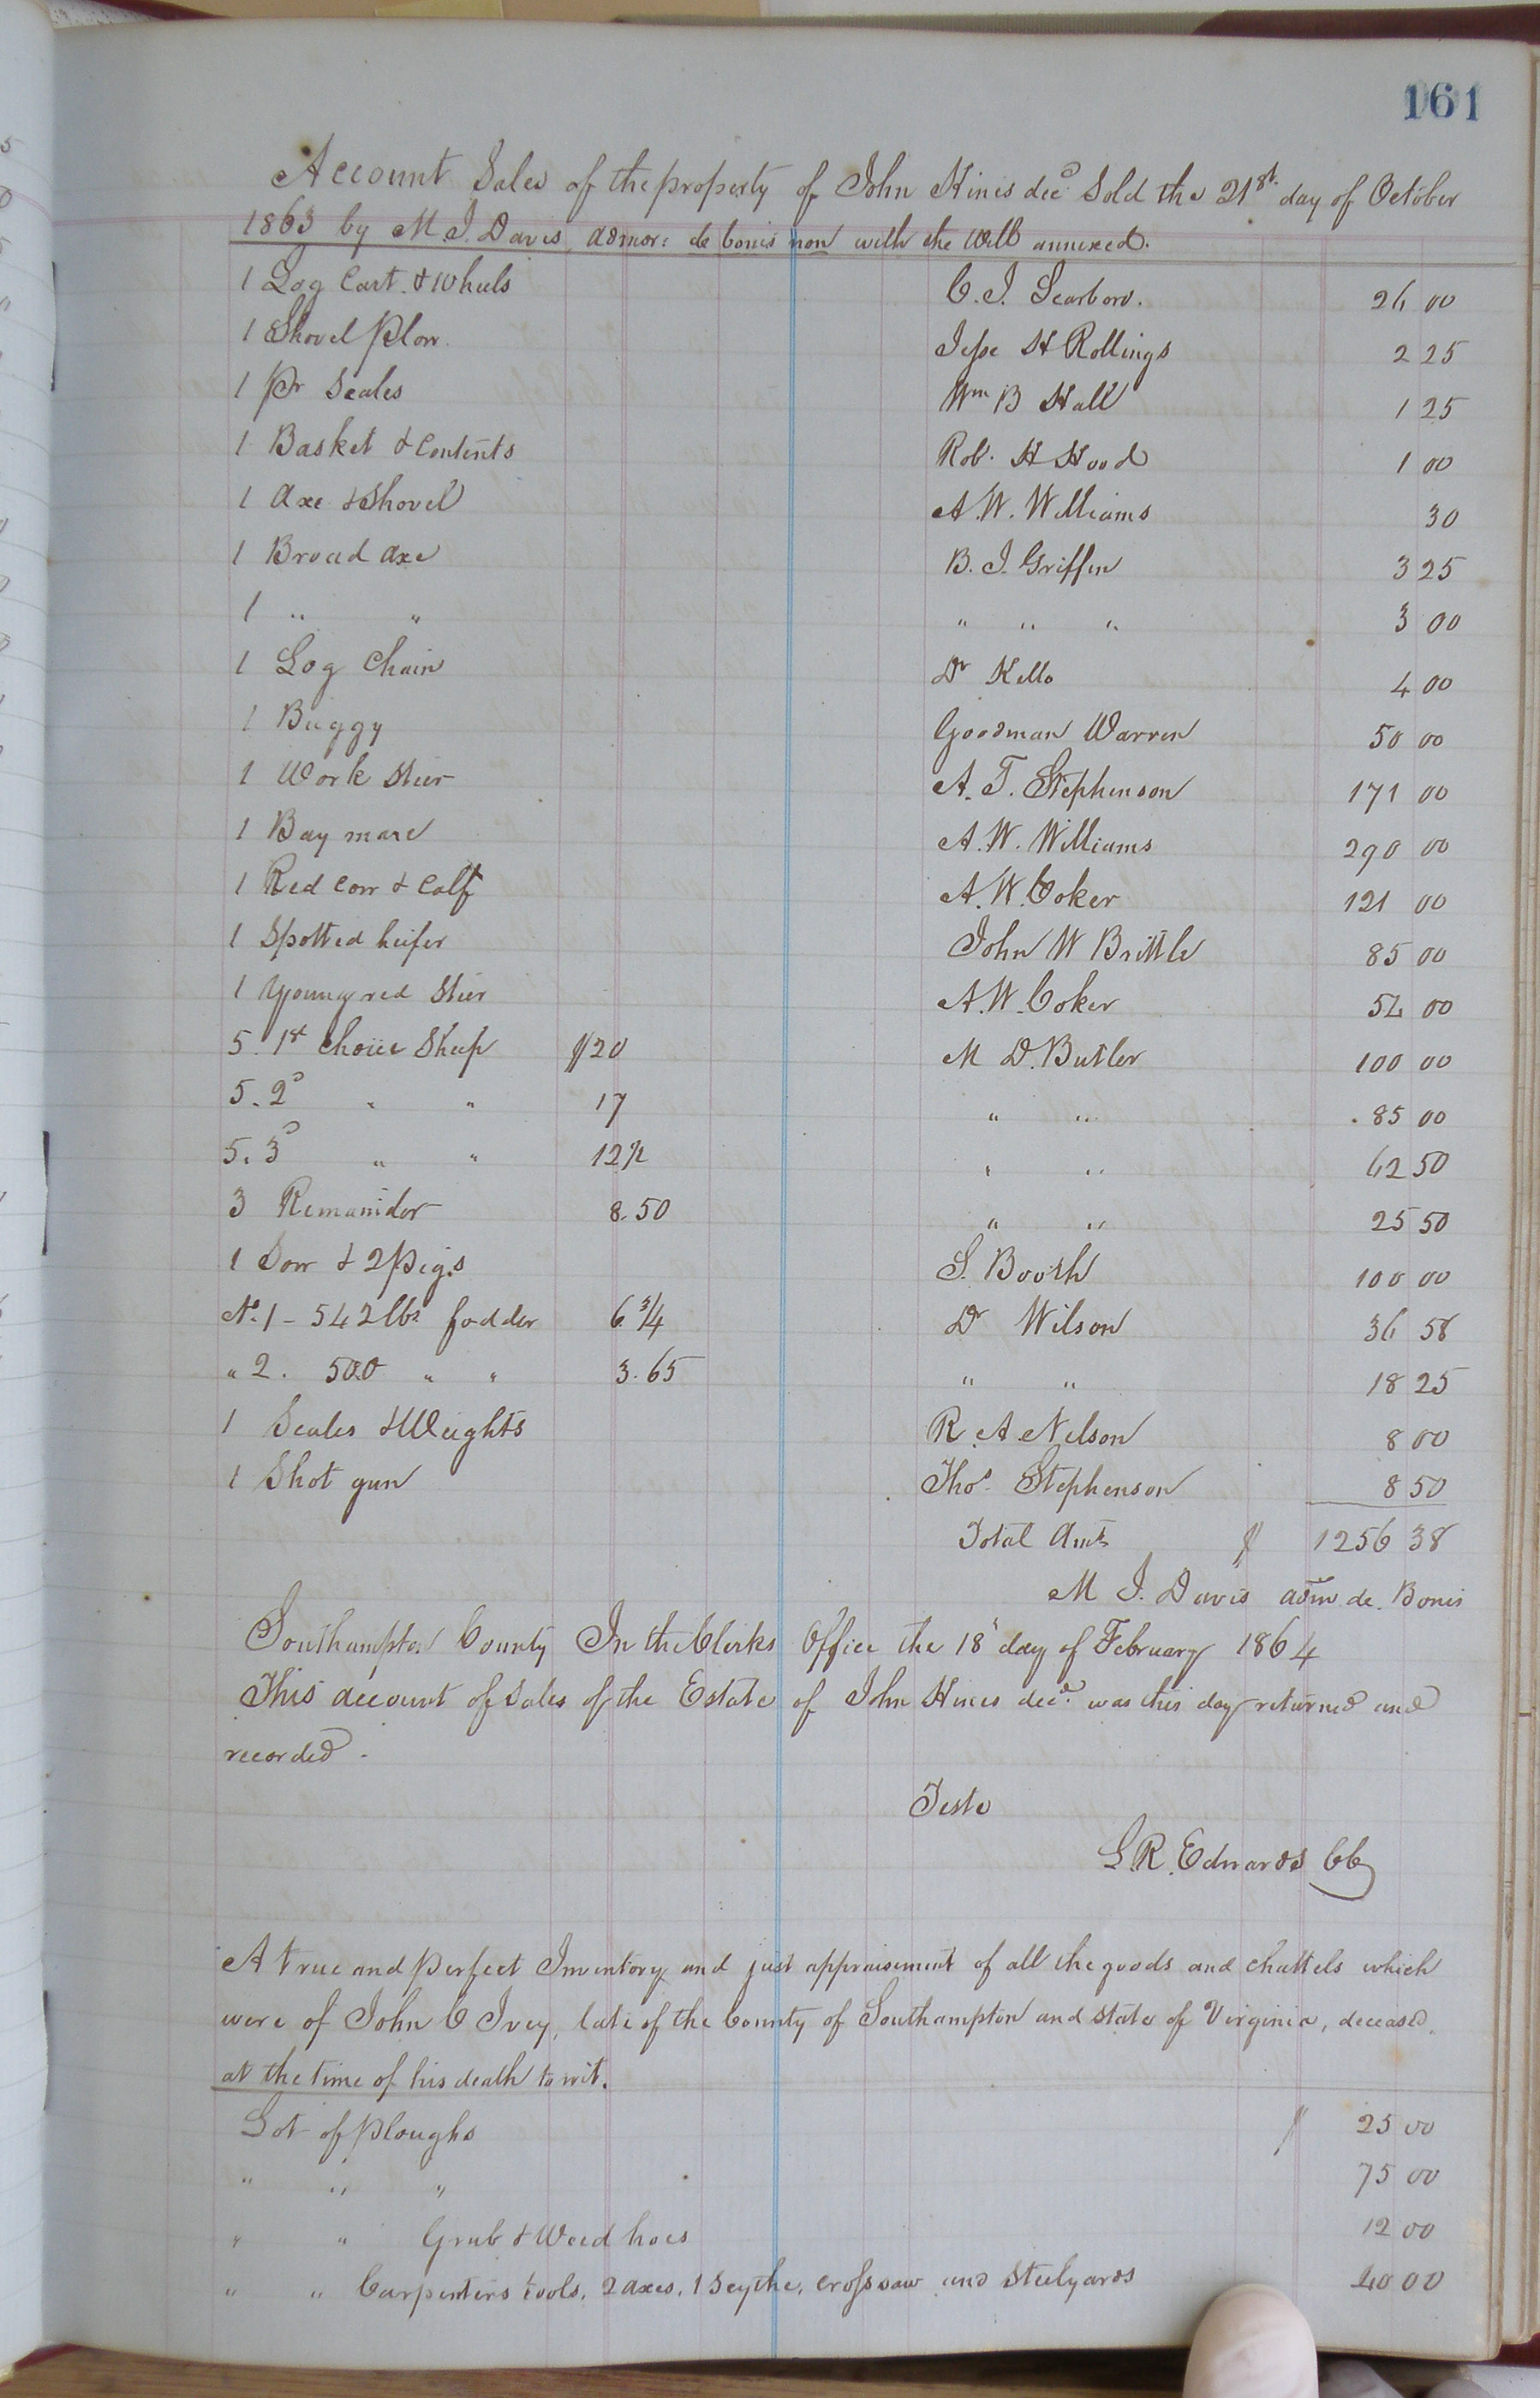 161
Account Sales of the property of John Hines decd Sold the 21st. day of October
1863 by M. J. Davis, admor: de bonis non with the Will annexed.
1 Log Cart. & Wheels C. J. Scarboro. 26 00
1 Shovel Plow. Jesse H Rollings 2 25
1 Pr Scales Wm B Hall 1 25
1 Basket & Contents Rob. H Hood 1 00
1 Axe & Shovel A. W. Williams 30
1 Broad axe B. J. Griffin 3 25
1 " " " " " 3 00
1 Log Chain Dr Kello 4 00
1 Buggy Goodman Warren 50 00
1 Work Steer A. T. Stephenson 171 00
1 Bay mare A. W. Williams 290 00
1 Red Cow & Calf A. W. Coker 121 00
1 Spotted heifer John W Brittle 85 00
1 Young red Steer A. W. Coker 54 00
5. 1st Choice Sheep $20 M D. Butler 100 00
5. 2d " " 17 " " 85 00
5. 3d " " 12½ " " 62 50
3 Remainder 8.50 " " 25 50
1 Sow & 2 Pigs S. Booth 100 00
No. 1 - 542 lbs. fodder 6 3/4 Dr Wilson 36 58
" 2. 500 " " 3.65 " " 18 25
1 Scales & Weights R. A Nelson 8 00
1 Shot gun Thos. Stephenson 8 50
Total Amt $ 1256 38
M J. Davis adm de. Bonis
Southampton County In the Clerks Office the 18 day of February 1864
This account of Sales of the Estate of John Hines decd. was this day returned and
recorded -
Teste
L. R. Edwards CC
A true and perfect Inventory and just appraisement of all the goods and chattels which
were of John C Ivey, late of the County of Southampton and state of Virginia, deceased,
at the time of his death to wit.
Lot of Ploughs $ 25 00
" " " 75 00
" " Grub & Weed hoes 12 00
" " Carpenters tools, 2 axes, 1 Scythe, cross saw and Steelyards 40 00